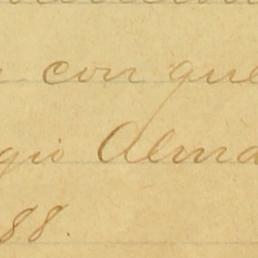 con que
gio Alma
88.